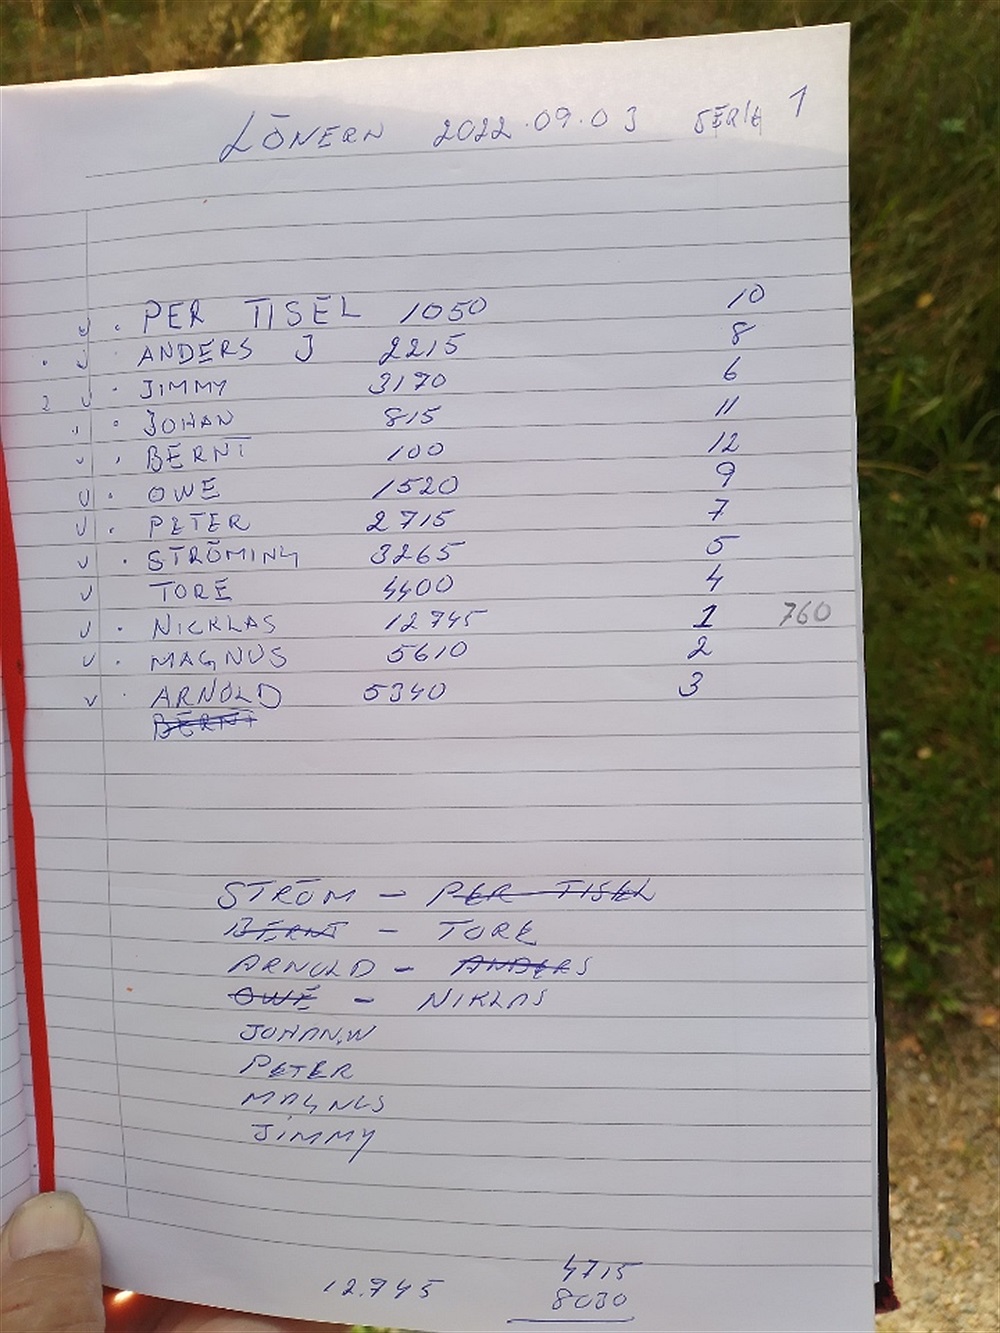 LÖNERN 2022.09.03 SERIE 1
PER TISEL 1050 10
ANDERS J 2215 8
2 JIMMY 3170 6
JOHAN 815 11
BERNT 100 12
OWE 1520 9
PETER 2715 7
STRÖMING 3265 5
TORE 4400 4
NICKLAS 12745 1 760
MAGNUS 5610 2
ARNOLD 5340 3
BERNT
STRÖM - PER TISEL
BERNT - TORE
ARNOLD - ANDERS
OWE - NIKLAS
JOHAN.W
PETER
MAGNUS
JIMMY
4715
12.745 8030